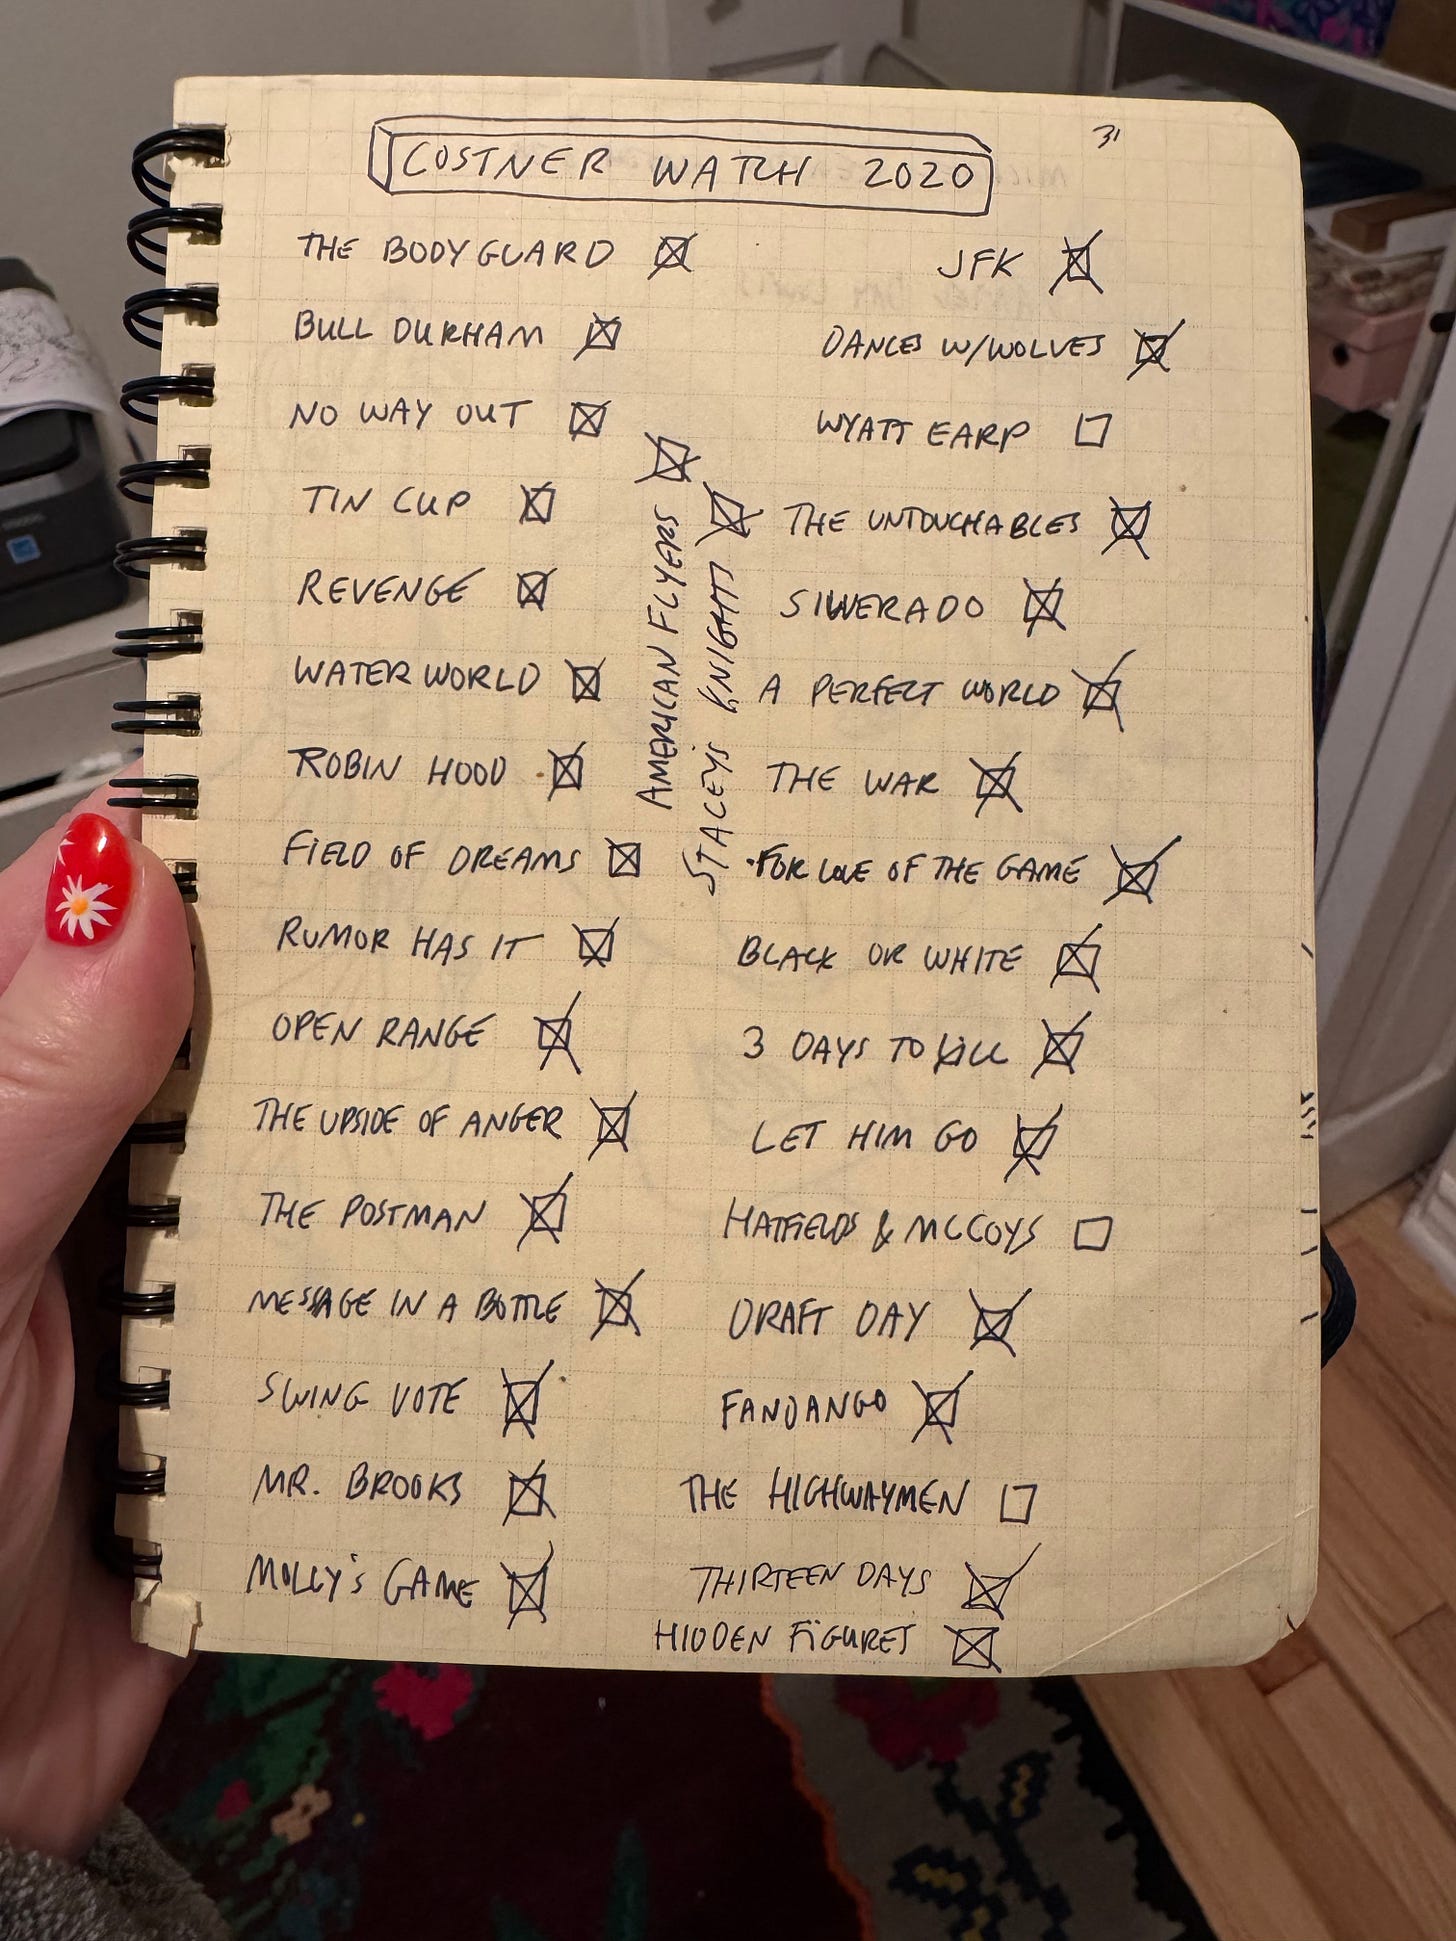 COSTNER WATCH 2020
31
THE BODYGUARD
BULL DURHAM
NO WAY OUT
TIN CUP
REVENGE
WATERWORLD
ROBIN HOOD
FIELD OF DREAMS
RUMOR HAS IT
OPEN RANGE
THE UPSIDE OF ANGER
THE POSTMAN
MESSAGE IN A BOTTLE
SWING VOTE
MR. BROOKS
MOLLY'S GAME
AMERICAN FLYERS
STACEY'S KNIGHTS
JFK
DANCES W/WOLVES
WYATT EARP
THE UNTOUCHABLES
SILVERADO
A PERFECT WORLD
THE WAR
FOR LOVE OF THE GAME
BLACK OR WHITE
3 DAYS TO KILL
LET HIM GO
HATFIELDS & MCCOYS
DRAFT DAY
FANDANGO
THE HIGHWAYMEN
THIRTEEN DAYS
HIDDEN FIGURES